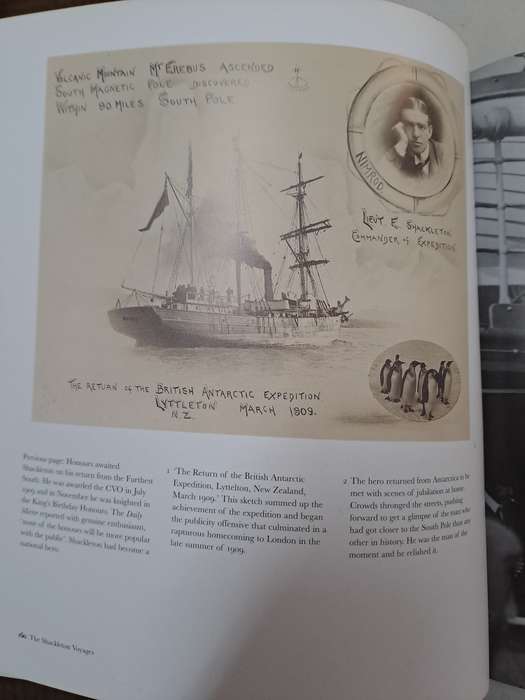 VOLCANIC MOUNTAIN MT EREBUS ASCENDED
SOUTH MAGNETIC POLE DISCOVERED
WITHIN 90 MILES SOUTH POLE
NIMROD
LIEUT E. SHACKLETON
COMMANDER of EXPEDITION
THE RETURN OF THE BRITISH ANTARCTIC EXPEDITION
LYTTLETON MARCH 1909.
N.Z.
Previous page: Honours awaited
Shackleton on his return from the Furthest
South. He was awarded the CVO in July
1909 and in November he was knighted in
the King's Birthday Honours. The Daily
Mirror reported with genuine enthusiasm,
'none of the honours will be more popular
with the public'. Shackleton had become a
national hero.
1 'The Return of the British Antarctic
Expedition, Lyttelton, New Zealand,
March 1909.' This sketch summed up the
achievement of the expedition and began
the publicity offensive that culminated in a
rapturous homecoming to London in the
late summer of 1909.
2 The hero returned from Antarctica to be
met with scenes of jubilation at home.
Crowds thronged the streets, pushing
forward to get a glimpse of the man who
had got closer to the South Pole than any
other in history. He was the man of the
moment and he relished it.
160 The Shackleton Voyages